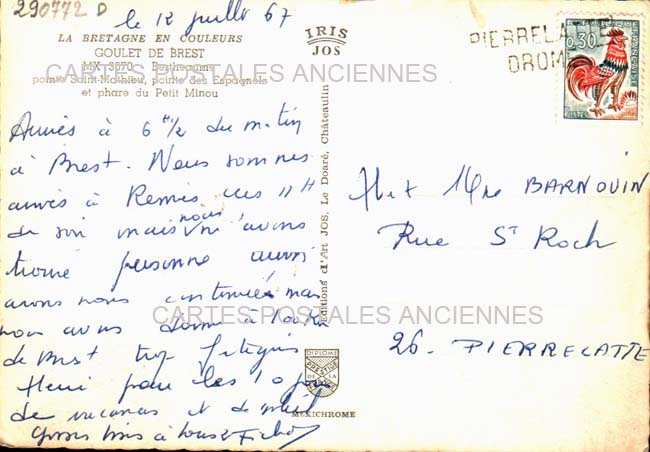 290772 D
le 12 juillet 67
LA BRETAGNE EN COULEURS
GOULET DE BREST
MX 3570 Bertheaume
pointe Saint-Mathieu, pointe des Espagnols
et phare du Petit Minou
IRIS
JOS
PIERRELATTE
DROME
0,30
POSTES
Arrivés à 6 h 1/2 du matin
à Brest. Nous sommes
arrivés à Rennes vers 11 H
du soir mais nous n'avons
trouvé personne aussi
avons nous continués mais
nous avons dormi à 100 km
de Brest trop fatigués
pour les 10 jours
de vacances et de soleil
Grosses bises à tous
Editions d'Art JOS, Le Doaré, Châteaulin
DIPLOME
PRESTIGE
DE LA
MEXICHROME
Mr et Mme BARNOUIN
Rue St Roch
26 - PIERRELATTE
CARTES POSTALES ANCIENNES
CARTES POSTALES ANCIENNES